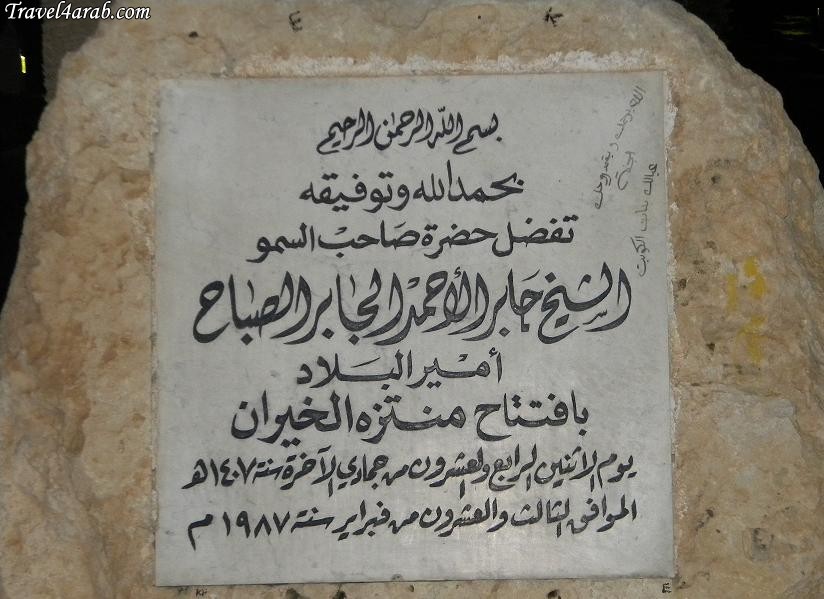 Travel4arab.com
بسم الله الرحمن الرحيم
بحمد الله وتوفيقه
تفضل حضرة صاحب السمو
الشيخ جابر الأحمد الجابر الصباح
أمير البلاد
بافتتاح منتزه الخيران
يوم الاثنين الرابع والعشرون من جمادي الآخرة سنة ١٤٠٧هـ
الموافق الثالث والعشرون من فبراير سنة ١٩٨٧م
بنات الكويت